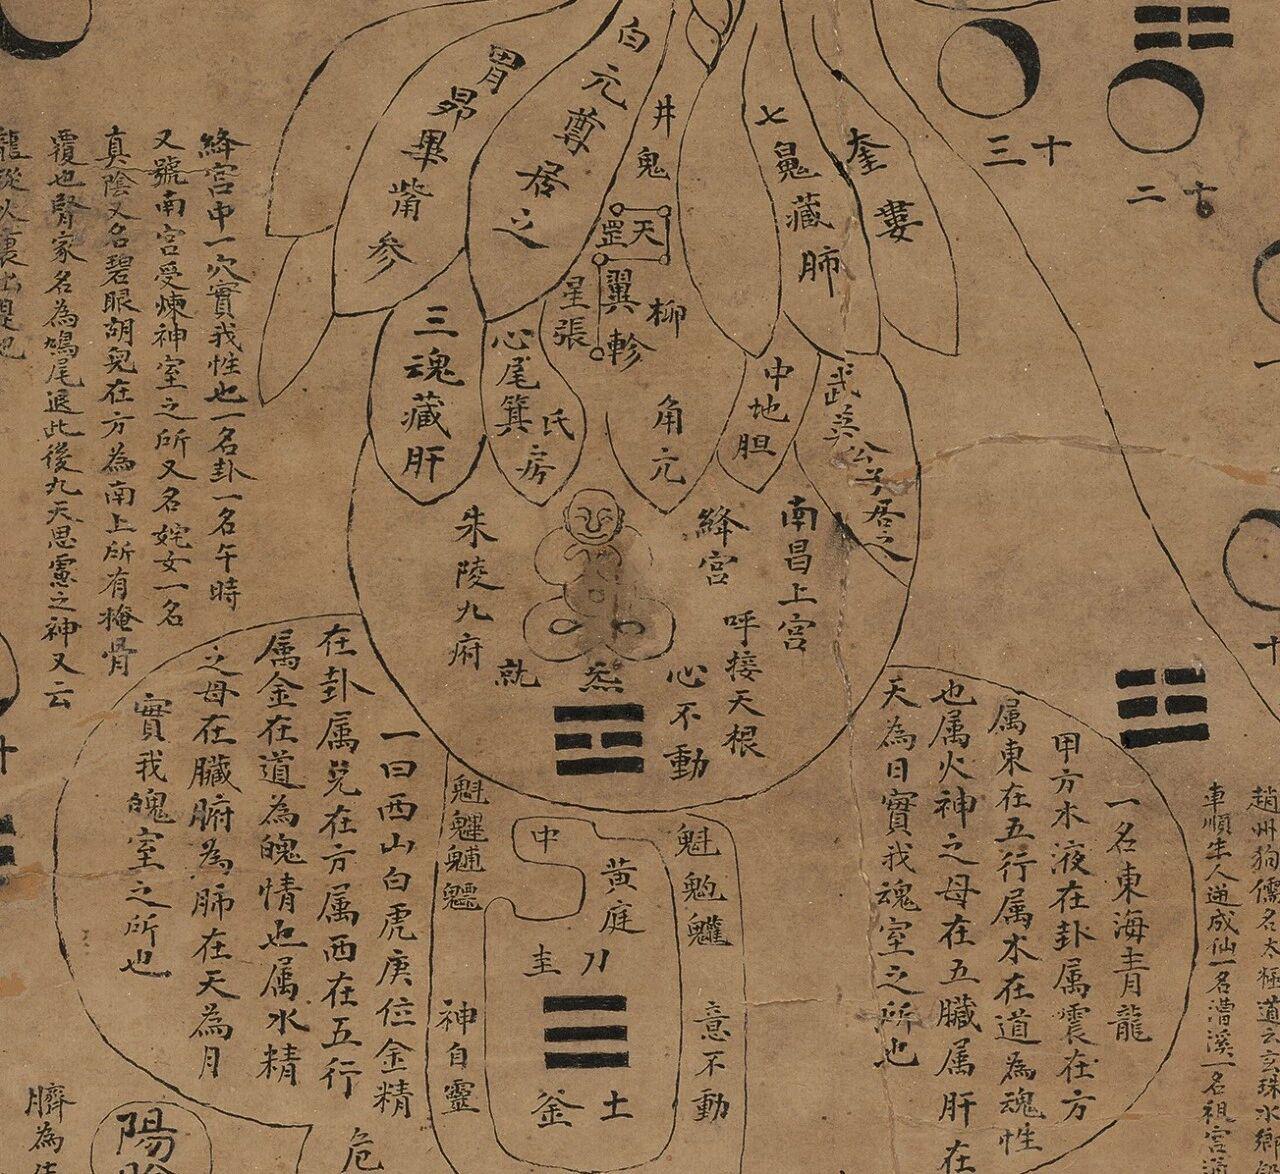 胃昴畢觜参
白元尊居之
井鬼
七鬼藏肺
奎婁
十三
十二
天罡
翼軫
柳
星張
三魂藏肝
心尾箕
氐房
角亢
中地胆
朱陵九府
絳宮
南昌上宮
呼接天根
就
炁
心不動
絳宮中一穴實我性也一名卦一名午時
又號南宮受煉神室之所又名姹女一名
真陰又名碧眼胡兒在方為南上所有掩骨
覆也腎家名為鳩尾退此後九天思慮之神又云
一曰西山白虎庚位金精
在卦属兌在方属西在五行
属金在道為魄情也属水精
之母在臟腑為肺在天為月
實我魄室之所也
一名東海青龍
甲方水液在卦属震在方
属東在五行属水在道為魂性
也属火神之母在五臟属肝在
天為日實我魂室之所也
魁
中
黄庭
刀圭
土釜
神自靈
意不動
趙州狗儒名太極道云玄珠水鄉
車順生人逆成仙一名漕溪一名祖宮
臍為
陽
危
十